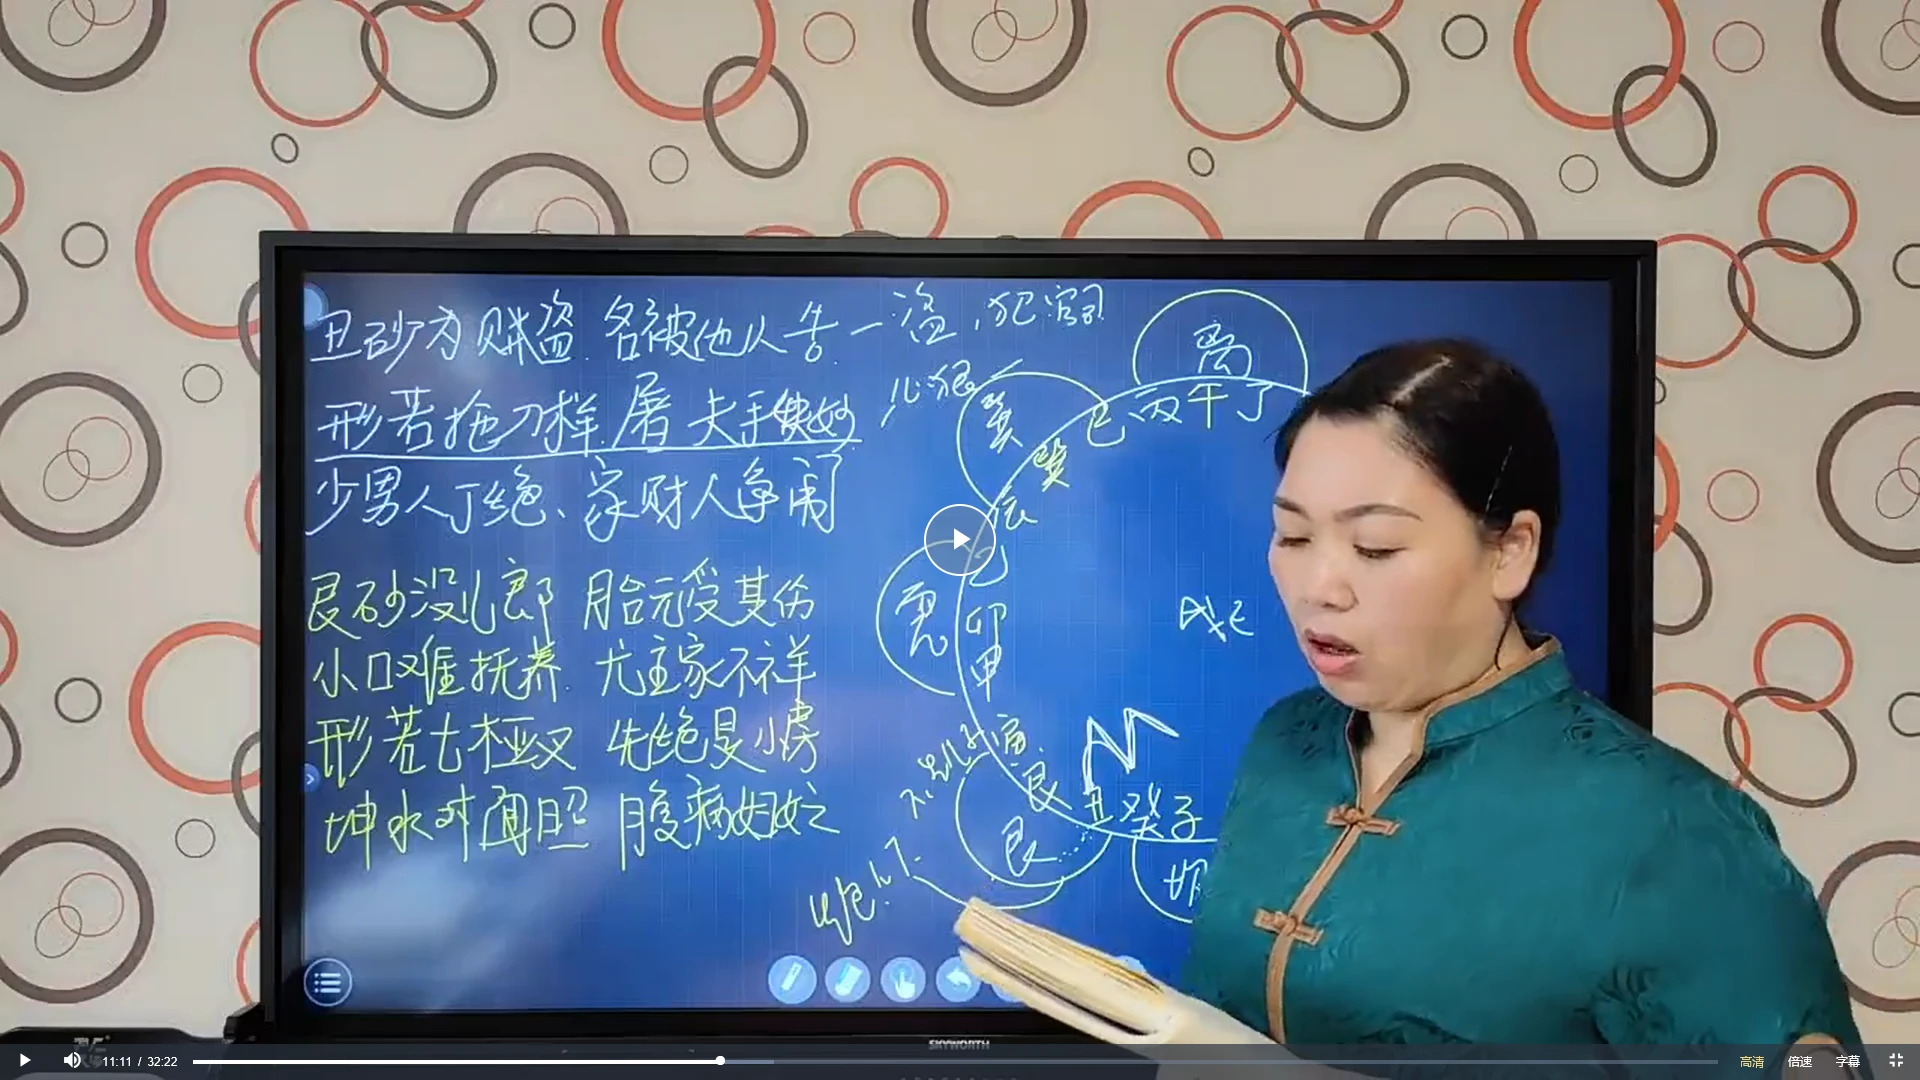 丑砂为贼盗 名被他人告 一盗,犯窃
形若拖刀样 屠夫手缺妙
少男人丁绝、家财人争闹
艮砂没儿郎 胎元受其伤
小口难抚养 尤主家不祥
形若七桠叉 先绝是小房
坤水对面照 腹病妇女
离
巽
巳丙午丁
巽
辰
震
乙
卯
甲
寅
艮
艮
丑癸子
坎
SKYWORTH
11:11 / 32:22
高清 倍速 字幕